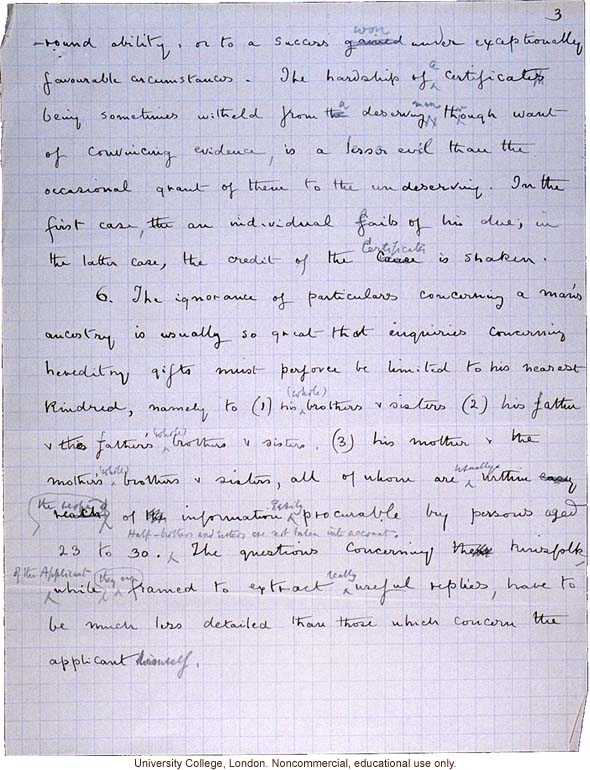 3
-round ability, or to a success gained won under exceptionally
favourable circumstances. The hardship of a certificates
being sometimes witheld from the a deserving man though want
of convincing evidence, is a lesser evil than the
occasional grant of them to the undeserving. In the
first case, the an individual fails of his due; in
the latter case, the credit of the Cause Certificate is shaken.
6. The ignorance of particulars concerning a man's
ancestry is usually so great that enquiries concerning
hereditry gifts must perforce be limited to his nearest
Kindred, namely to (1) his (whole) brothers & sisters (2) his father
& the father's (whole) brothers & sisters, (3) his mother & the
mother's (whole) brothers & sisters, all of whom are usually within easy
reach of the information Easily procurable by persons aged
Half-brothers and sisters are not taken into account.
23 to 30. The questions concerning these kinsfolk,
of the Applicant while they are framed to extract really useful replies, have to
be much less detailed than those which concern the
applicant himself.
University College, London. Noncommercial, educational use only.